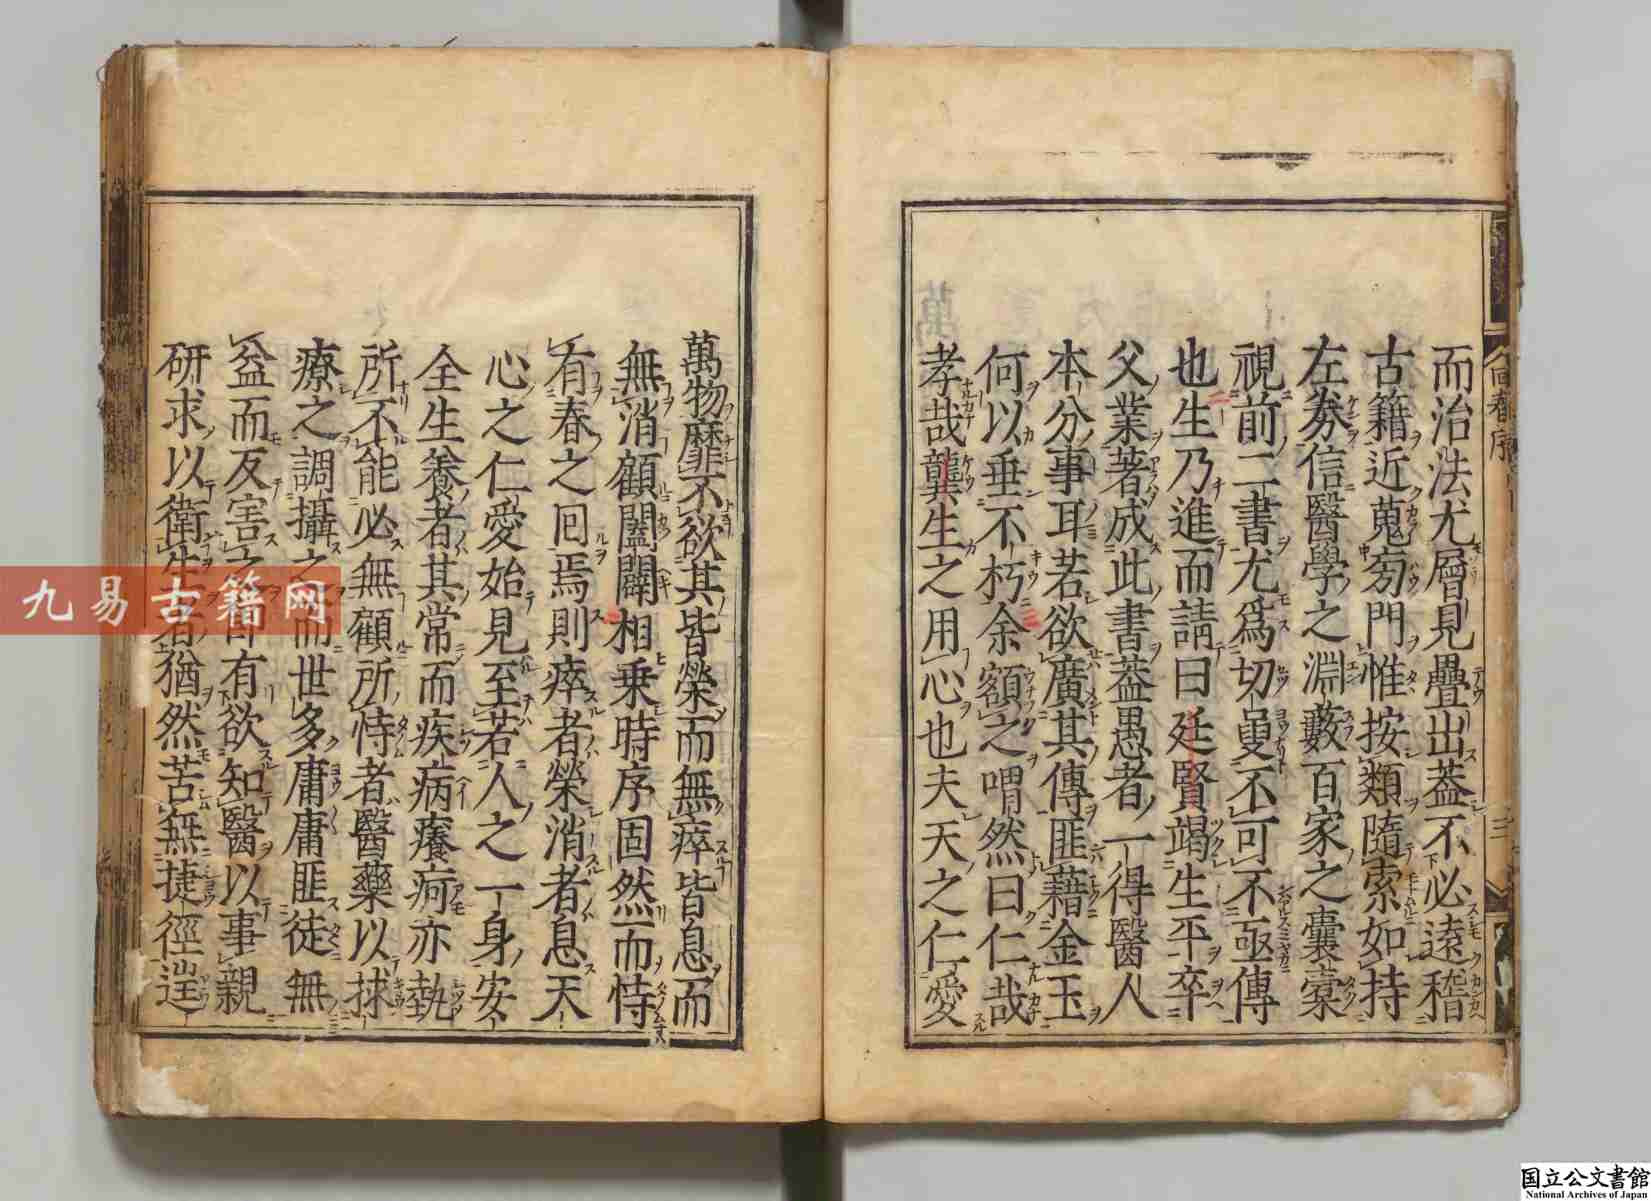 而治法尤層見疊出蓋不必遠稽
古籍近蒐旁門惟按類隨索如持
左券信醫學之淵藪百家之囊槖
視前二書尤爲切要不可不亟傳
也生乃進而請曰廷賢竭生平卒
父業著成此書蓋愚者一得醫人
本分事耳若欲廣其傳匪藉金玉
何以垂不朽余額之喟然曰仁哉
孝哉龔生之用心也夫天之仁愛
萬物靡不欲其皆榮而無瘁皆息而
無消顧闔闢相乗時序固然而恃
有春之囘焉則瘁者榮消者息天
心之仁愛始見至若人之一身安
全生養者其常而疾病癢疴亦勢
所不能必無顧所恃者醫藥以捄
療之調攝之而世多庸庸匪徒無
益而反害之即有欲知醫以事親
研求以衛生者猶然苦無捷徑逞
回春序
三
九易古籍网
国立公文書館
National Archives of Japan